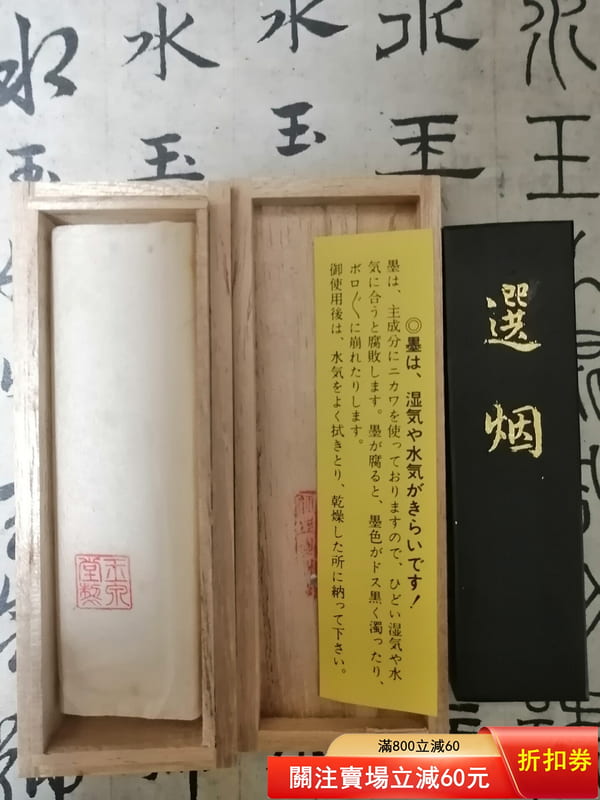 水 水 水 水 水
玉 玉 玉 玉 王
選烟
◎墨は、湿気や水気がきらいです！
墨は、主成分にニカワを使っておりますので、ひどい湿気や水
気に合うと腐敗します。墨が腐ると、墨色がドス黒く濁ったり、
ボロ〳〵に崩れたりします。
御使用後は、水気をよく拭きとり、乾燥した所に納って下さい。
玉泉
堂製
滿800立減60
關注賣場立減60元
折扣券